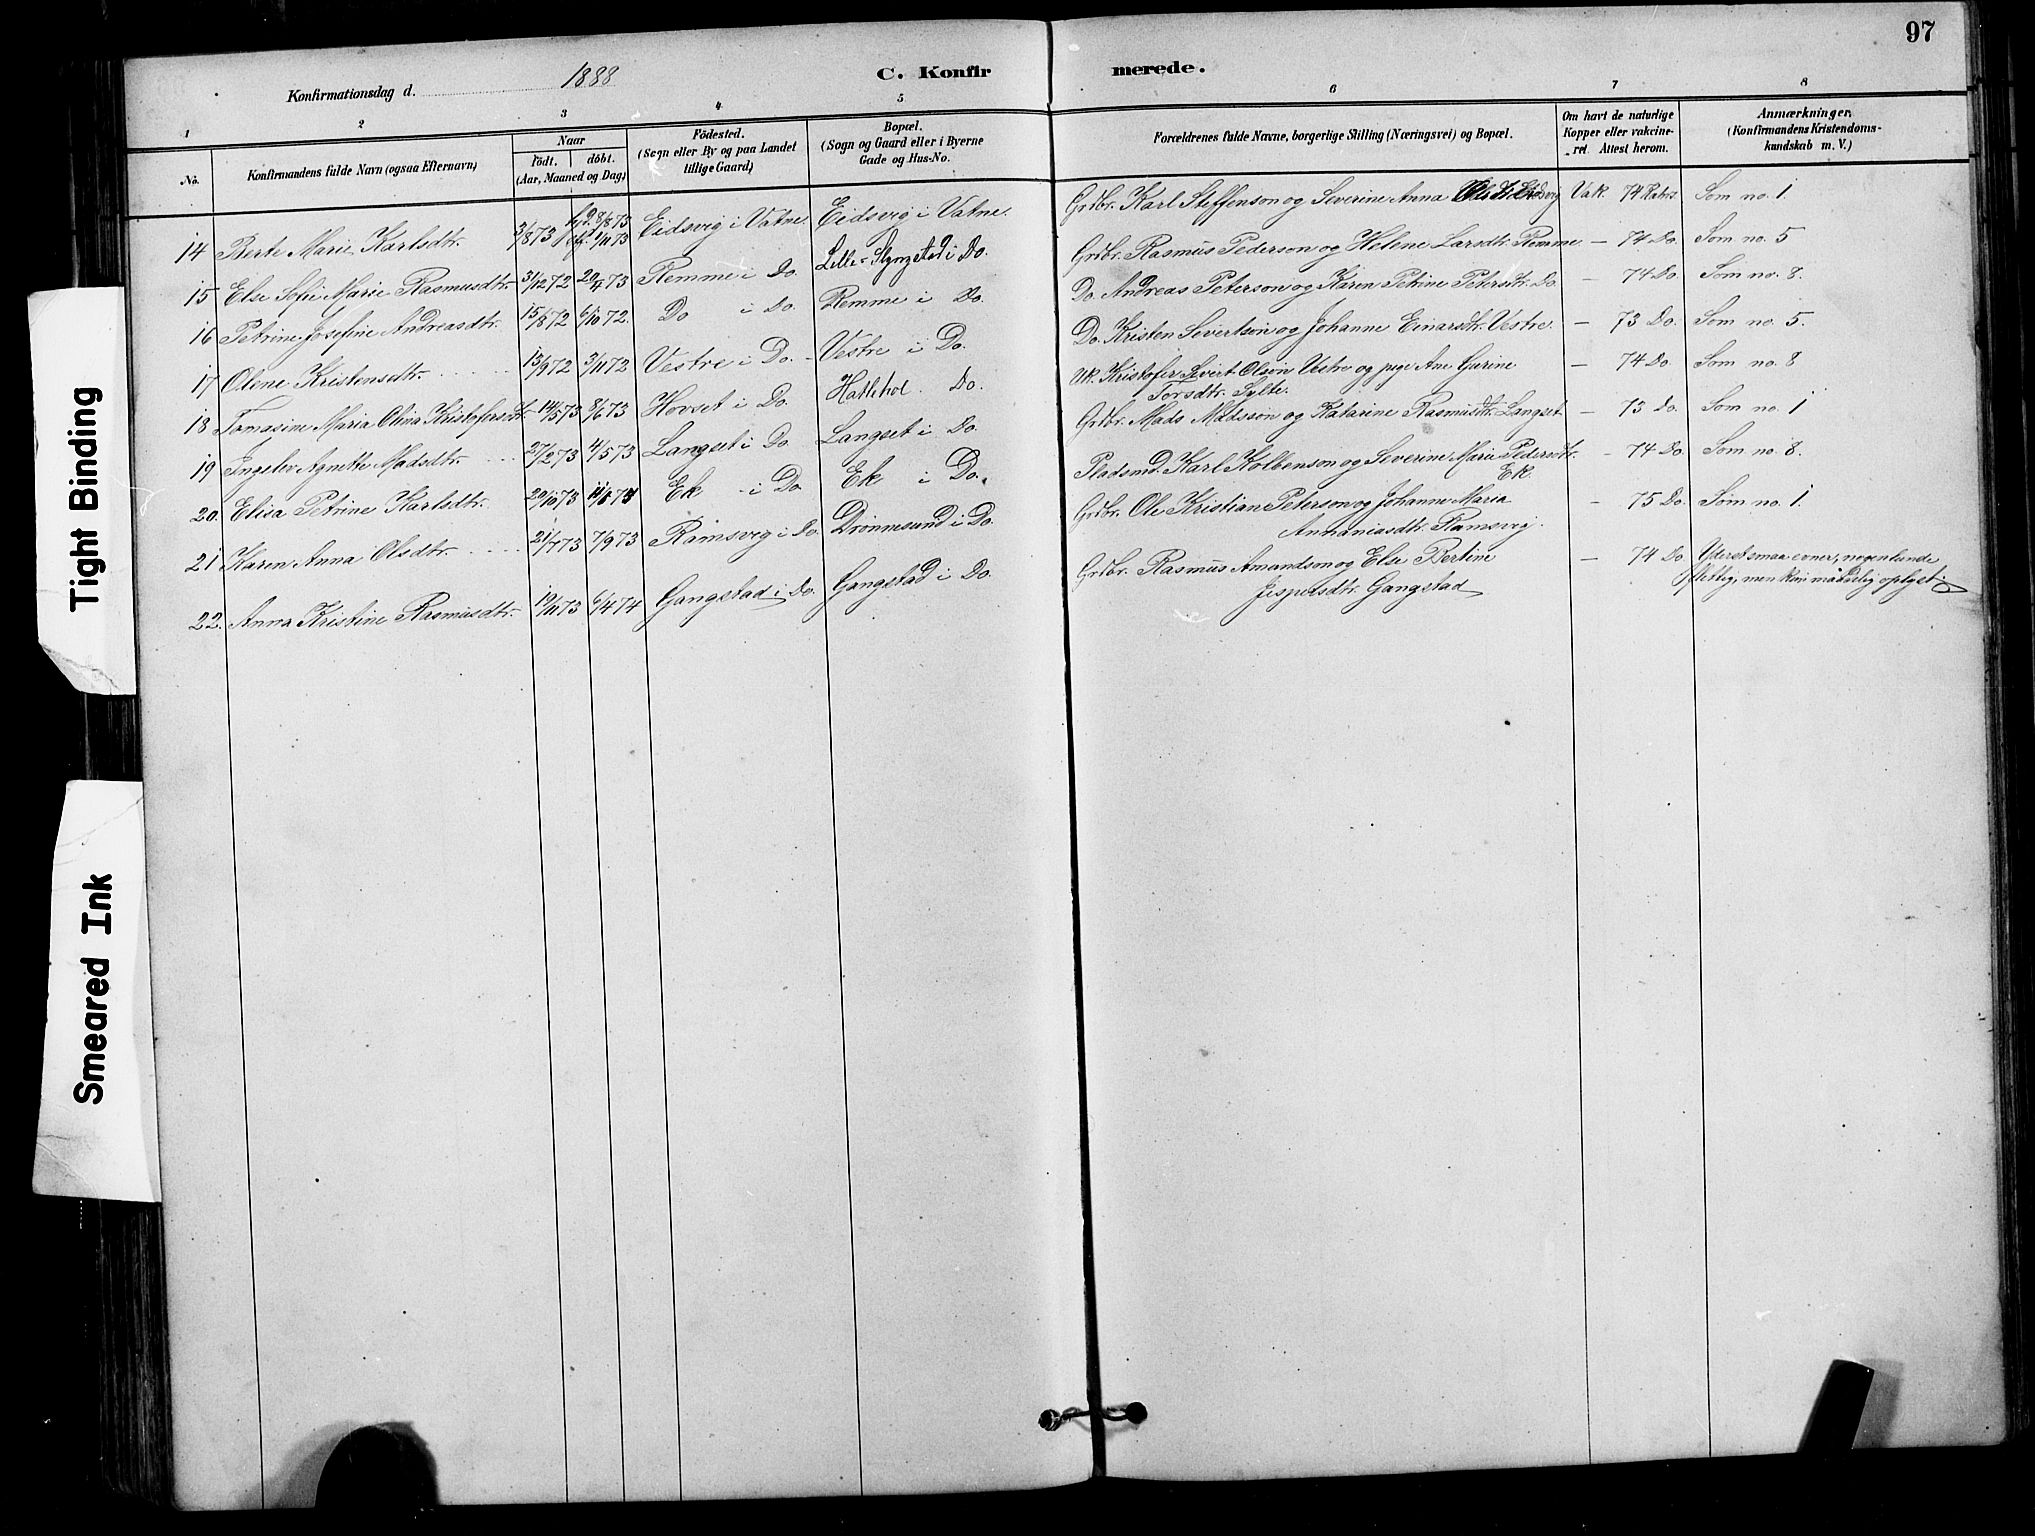 97
Konfirmationsdag d. 1888 C. Konfirmerede.
1 2 3 4 5 6 7 8
No. Konfirmandens fulde Navn (ogsaa Efternavn) Naar födt. döbt. (Aar, Maaned og Dag) Födested. (Sogn eller By og paa Landet tillige Gaard) Bopæl. (Sogn og Gaard eller i Byerne Gade og Hus-No. Forældrenes fulde Navne, borgerlige Stilling (Næringsvei) og Bopæl. Om havt de naturlige Kopper eller vakcineret. Attest herom. Anmærkninger. (Konfirmandens Kristendomskundskab m. V.)
14 Berte Marie Karlsdtr. 3/8 73 8/8 73 Eidsvig i Vatne. Eidsvig i Vatne. Grdbr. Karl Steffenson og Severine Anna Eidsvig Vak. 74 Som no. 1.
15 Else Sofie Marie Rasmusdtr. 31/12 72 20/4 73 Remme i Do. Lille-Slyngstad i Do. Grdbr. Rasmus Pederson og Helene Larsdtr. Remme. — 74 Do. Som no. 5
16 Petrine Josefine Andreasdtr. 15/8 72 6/10 72. Do i Do. Remme i Do. Do. Andreas Peterson og Karen Petrine Petersdtr. Do. — 74 Do. Som no. 8.
17 Olene Kristensdtr. 13/9 72 3/11 72 Vestre i Do. Vestre i Do. Do. Kristen Severtson og Johanne Einarsdtr. Vestre. — 73 Do. Som no. 5.
18 Tomasine Maria Olina Kristofersdtr. 14/5 73 8/6 73 Hovset i Do. Hatlehol Do. Uk. Kristofer Sivert Olson Vestre og pige Ane Gurine
Torsdtr. Sylte. — 74 Do. Som no. 8
19 Ingelev Agnette Madsdtr. 27/2 73 4/5 73 Langset i Do. Langset i Do. Grdbr. Mads Madsson og Katarine Rasmusdtr. Langset. — 73 Do. Som no. 1
20. Elisa Petrine Karlsdtr. 29/10 73 Ek i Do. Ek i Do. Pladsmd. Karl Kolbenson og Severine Marie Pedersdtr.
Ek. — 74 Do. Som no. 8.
21 Karen Anna Olsdtr. 21/7 73 7/9 73 Ramsvig i Do. Drönnesund i Do. Grdbr. Ole Kristian Peterson og Johanne Maria
Annaniasdtr. Ramsvig. — 75 Do. Som no. 1.
22. Anna Kristine Rasmusdtr. 19/11 73 6/4 74 Gangstad i Do. Gangstad i Do. Grdbr. Rasmus Amandson og Else Bertine
Jespersdtr. Gangstad — 74 Do. Yderst smaa evner, nogenlunde
flittig, men kun maadelig oplyst.
Tight Binding
Smeared Ink